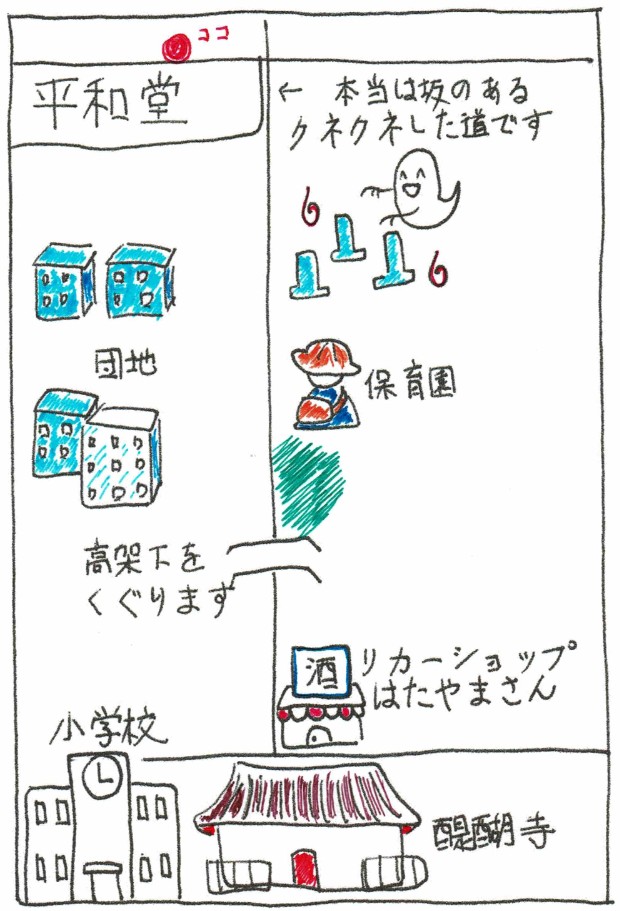 ココ
平和堂
← 本当は坂のある
クネクネした道です
団地
保育園
高架下を
くぐります
酒
リカーショップ
はたやまさん
小学校
醍醐寺